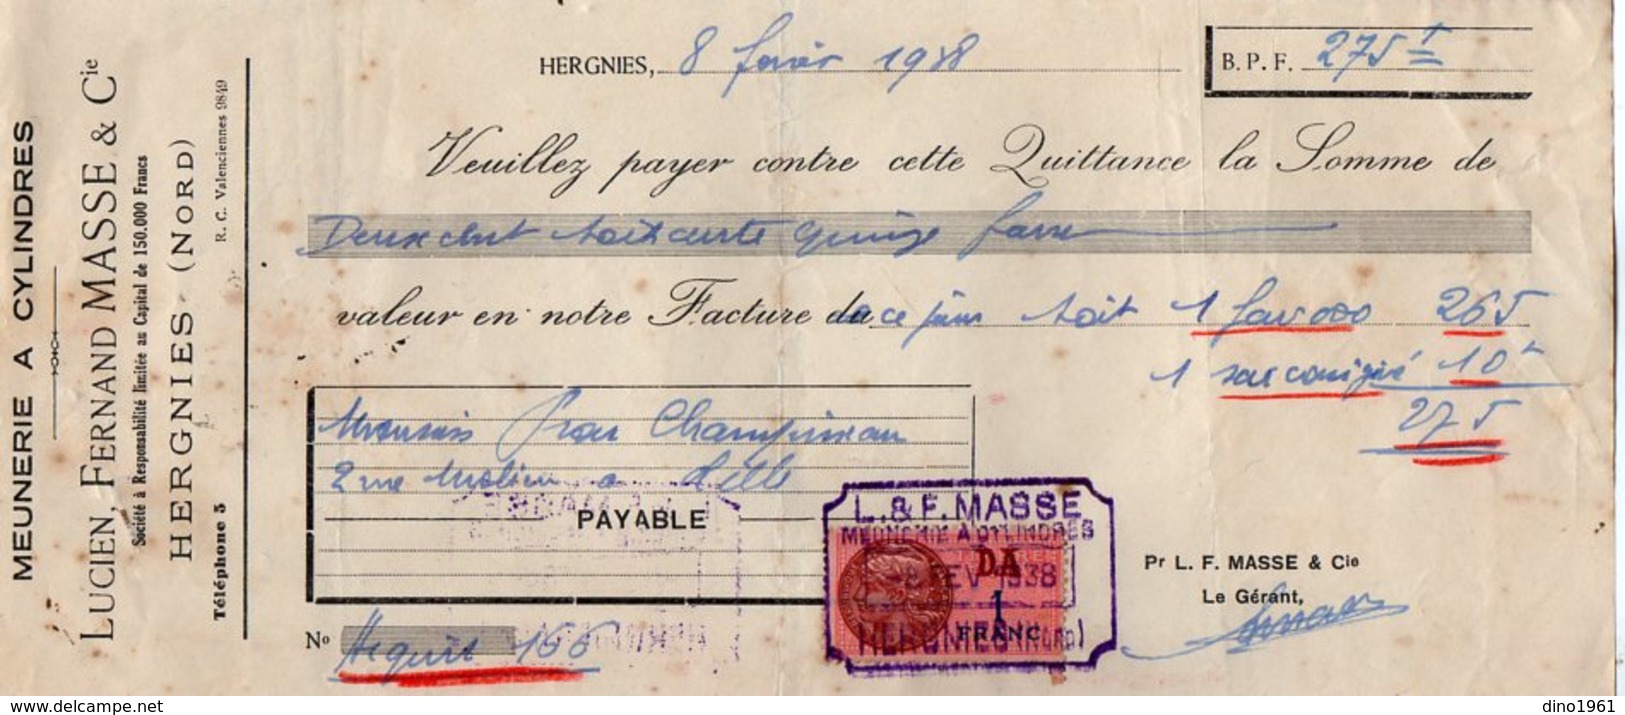 MEUNERIE A CYLINDRES
LUCIEN, FERNAND MASSE & Cie
Société à Responsabilité limitée au Capital de 150.000 Francs
HERGNIES (NORD)
Téléphone 5
R. C. Valenciennes 9849
HERGNIES, 8 février 1938
B. P. F. 275 f
Veuillez payer contre cette Quittance la Somme de
Deux cent soixante quinze francs
valeur en notre Facture de ce jour soit 1 265
1 sac 10 f
275
Monsieur Champineau
2 rue à Lille
PAYABLE
No Acquit 166
L. & F. MASSE
MEUNERIE A CYLINDRES
DA
8 FEV 1938
1
FRANC
HERGNIES (Nord)
Pr L. F. MASSE & Cie
Le Gérant,
www.delcampe.net
dino1961